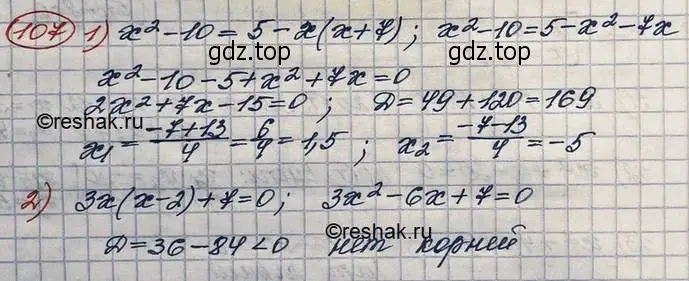 107 1) x² - 10 = 5 - x(x+7); x² - 10 = 5 - x² - 7x
gdz.top gdz.top
x² - 10 - 5 + x² + 7x = 0
2x² + 7x - 15 = 0; D = 49 + 120 = 169
©reshak.ru
x₁ = (-7+13)/4 = 6/4 = 1,5; x₂ = (-7-13)/4 = -5
2) 3x(x-2) + 7 = 0; 3x² - 6x + 7 = 0
©reshak.ru
D = 36 - 84 < 0 нет корней
gdz.top gdz.top